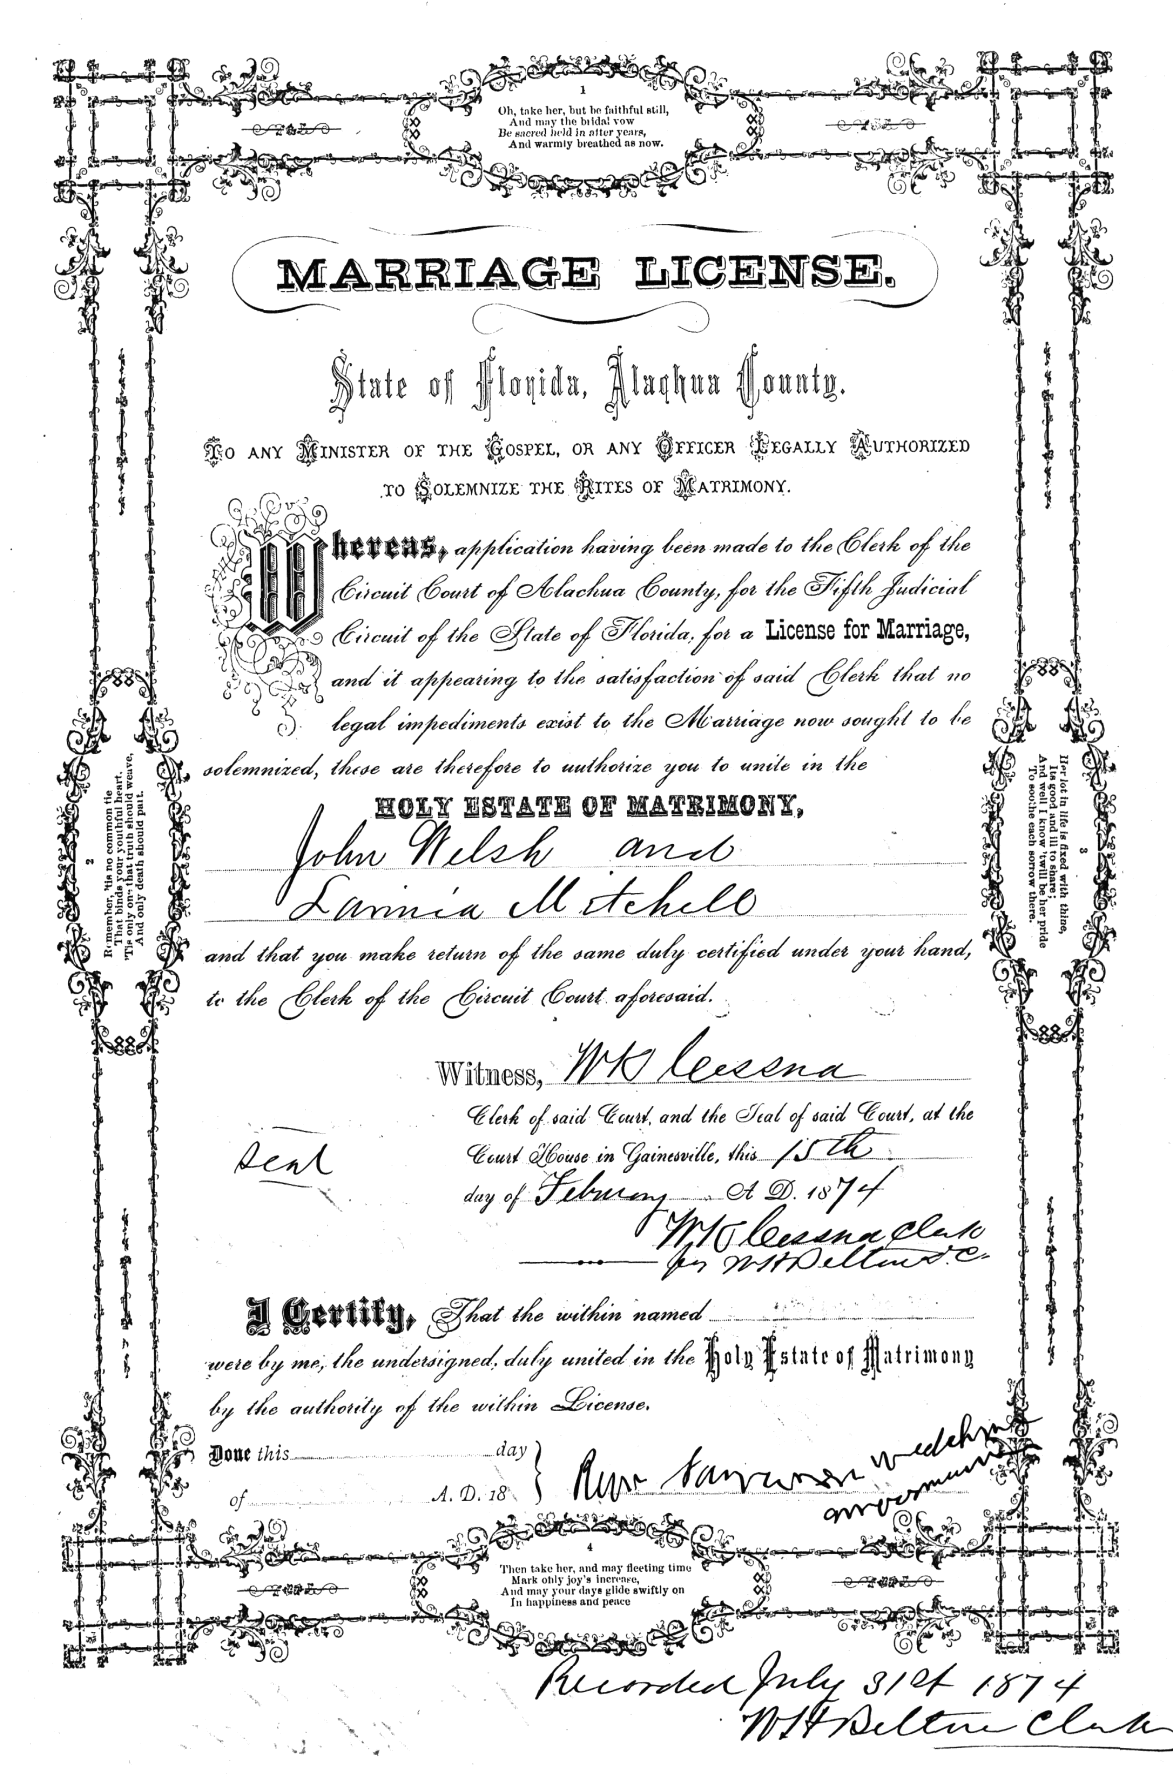 1
Oh, take her, but be faithful still,
And may the bridal vow
Be sacred held in after years,
And warmly breathed as now.
MARRIAGE LICENSE.
State of Florida, Alachua County.
TO ANY MINISTER OF THE GOSPEL, OR ANY OFFICER LEGALLY AUTHORIZED
TO SOLEMNIZE THE RITES OF MATRIMONY.
Whereas, application having been made to the Clerk of the
Circuit Court of Alachua County, for the Fifth Judicial
Circuit of the State of Florida, for a License for Marriage,
and it appearing to the satisfaction of said Clerk that no
legal impediments exist to the Marriage now sought to be
solemnized, these are therefore to authorize you to unite in the
HOLY ESTATE OF MATRIMONY,
John Welsh and
Lannia Mitchell
and that you make return of the same duly certified under your hand,
to the Clerk of the Circuit Court aforesaid.
2
Remember, 'tis no common tie
That binds your youthful heart,
'Tis only one that truth should weave,
And only death should part.
3
Her lot in life is fixed with thine,
Its good and ill to share;
And well I know 'twill be her pride
To soothe each sorrow there.
Witness, WK Cessna
Clerk of said Court, and the Seal of said Court, at the
Seal
Court House in Gainesville, this 15th
day of February A D. 1874
WK Cessna Clerk
per WH Belton D.C.
I Certify, That the within named
were by me, the undersigned, duly united in the Holy Estate of Matrimony
by the authority of the within License.
Done this day
of A. D. 18
4
Then take her, and may fleeting time
Mark only joy's increase,
And may your days glide swiftly on
In happiness and peace
Recorded July 31st 1874
WH Belton Clerk